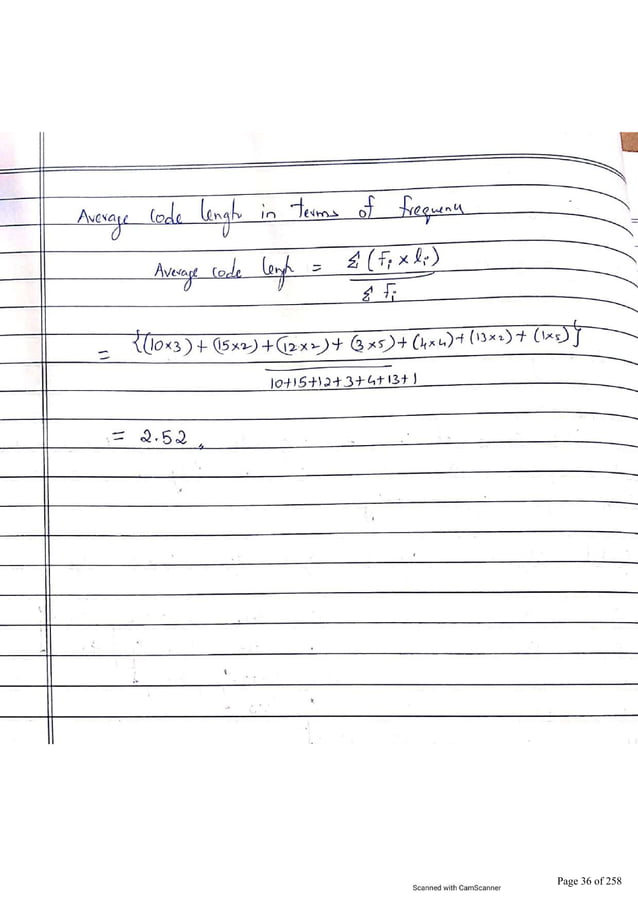 Average code length in terms of frequency
Average code length = Σ (fi × li) / Σ fi
= {(10×3) + (15×2) + (12×2) + (3×5) + (4×4) + (13×2) + (1×5)} / 10+15+12+3+4+13+1
= 2.52
Scanned with CamScanner
Page 36 of 258